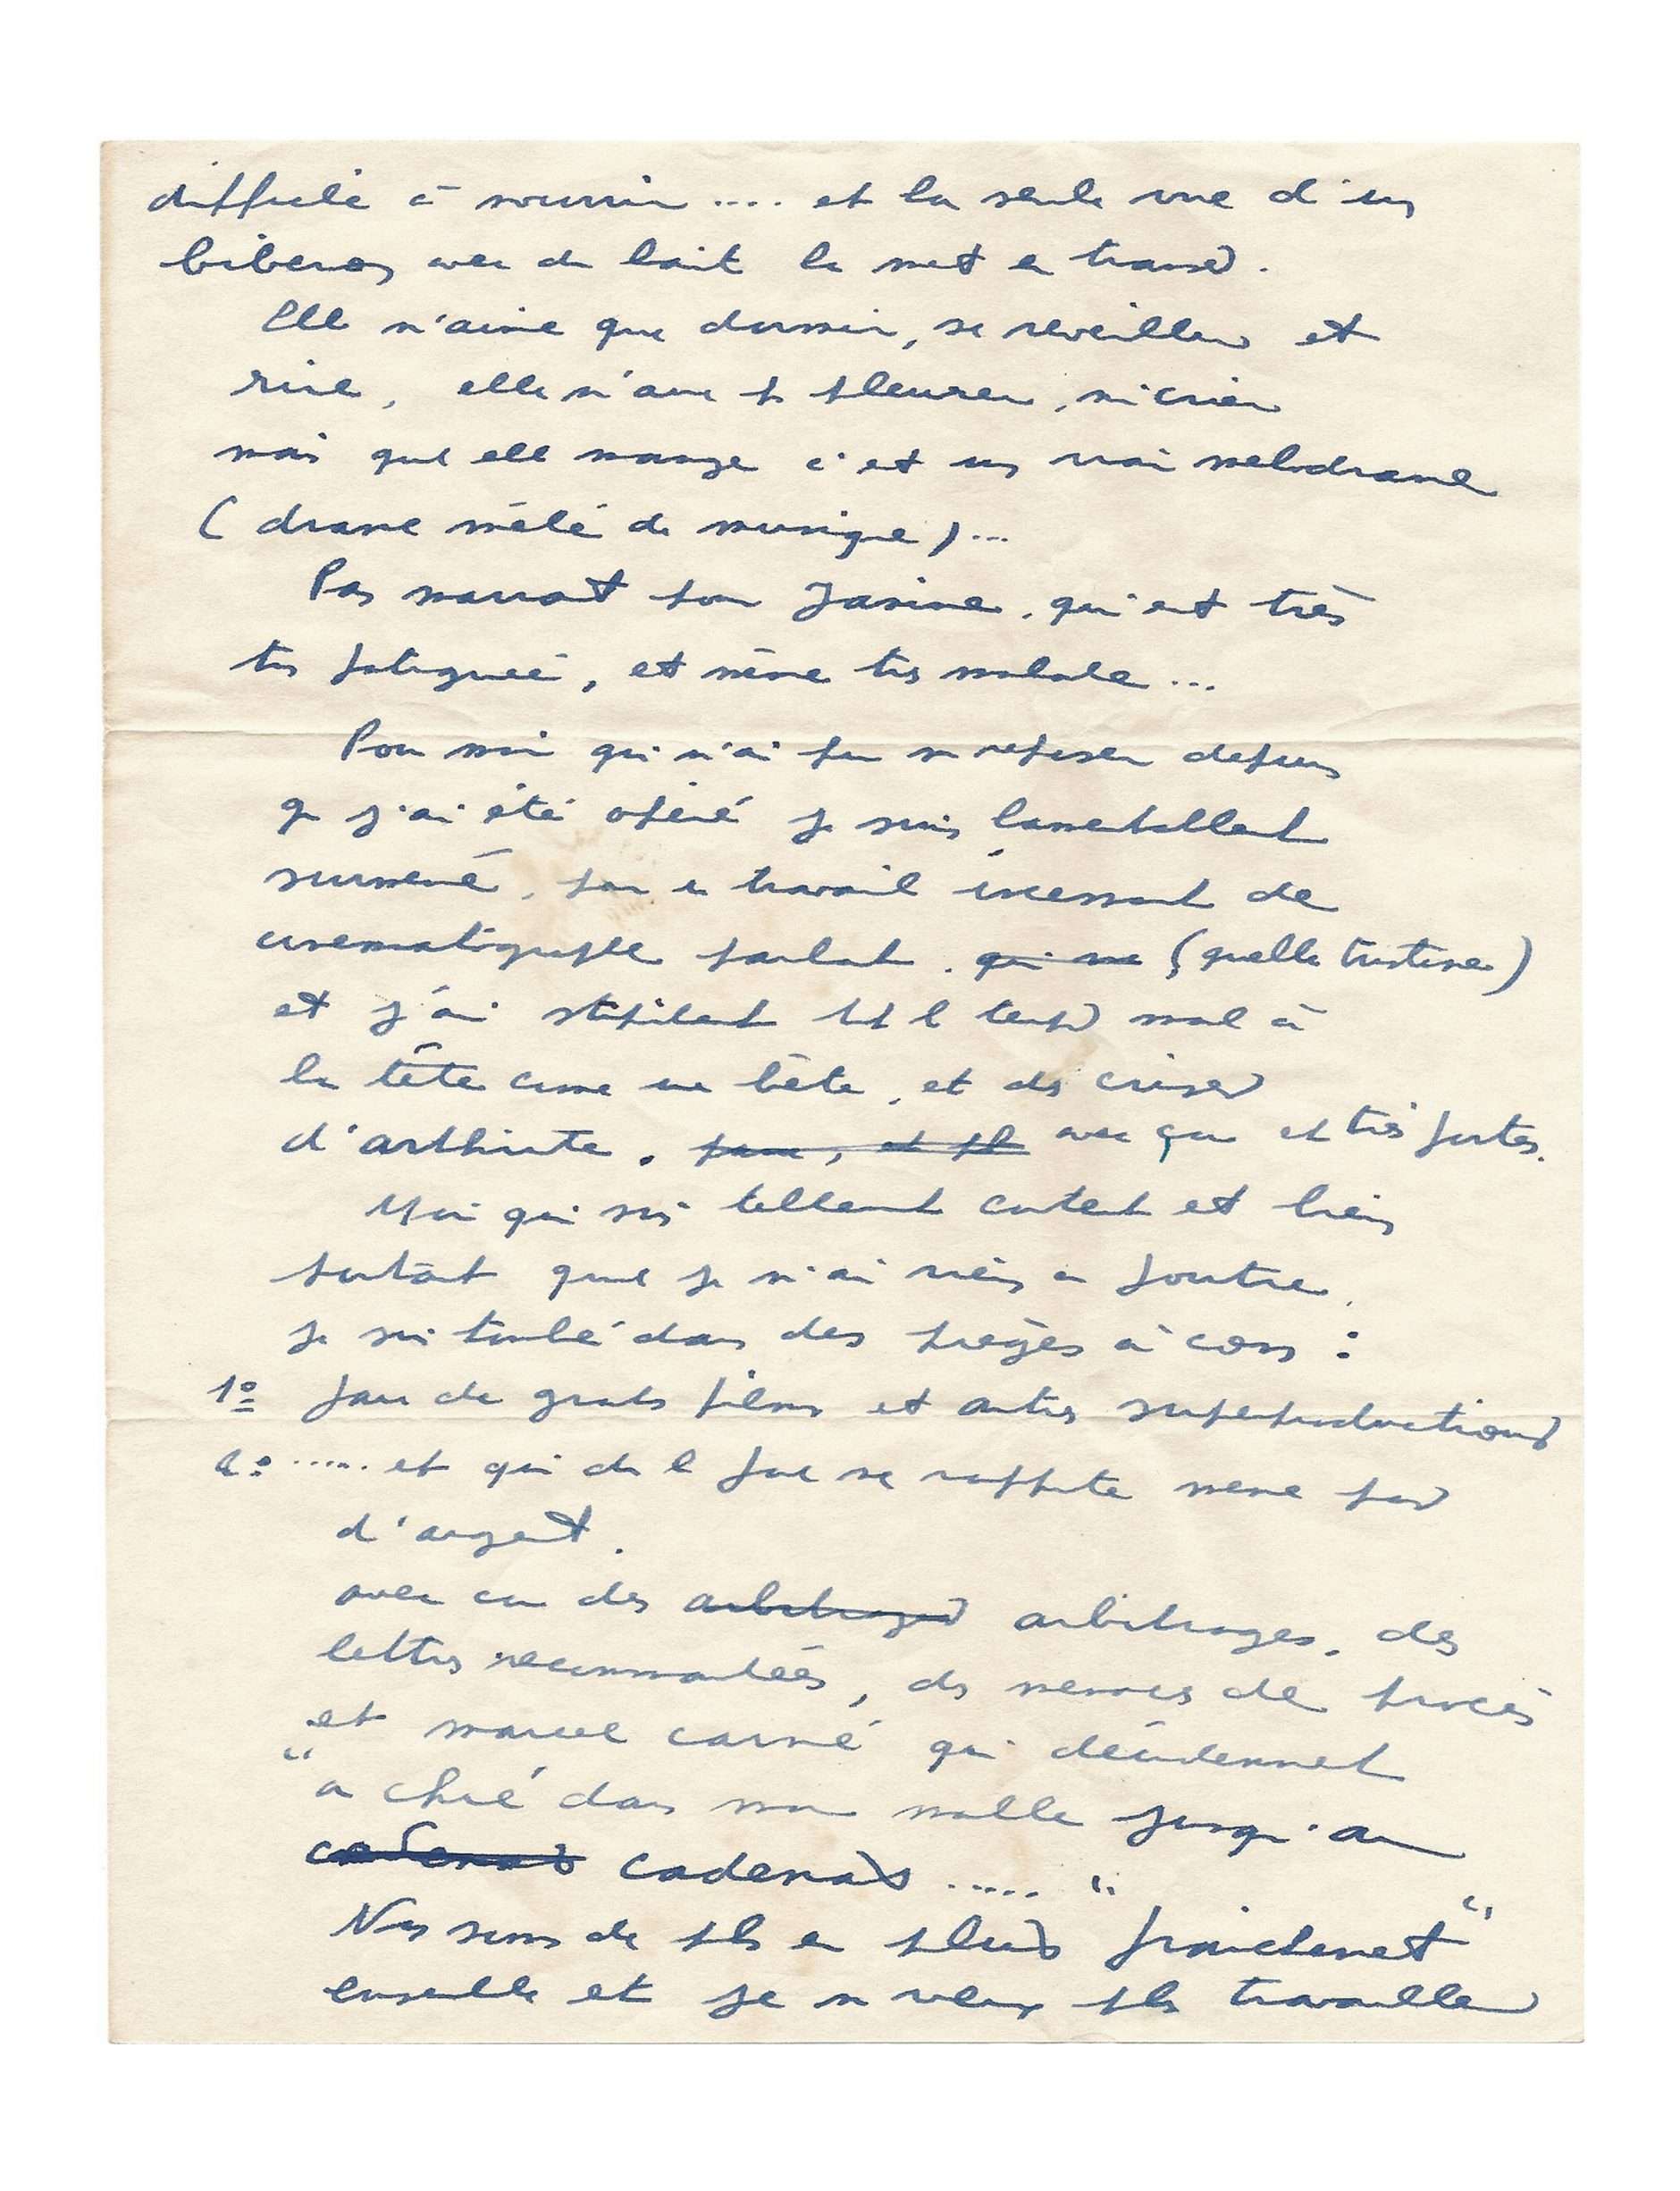 difficile à nourrir .... et la seule vue d'un
biberon avec du lait la met en transes.
Elle n'aime que dormir, se réveiller et
rire, elle n'aime ps pleurer, ni crier
mais que elle mange c'est un vrai mélodrame
(drame mêlé de musique)...
Pas marrant pour Janine, qui est très
très fatiguée, et même très malade...
Pour moi qui n'ai pu me reposer depuis
que j'ai été opéré je suis lamentablement
surmené, par un travail incessant de
cinématographe parlant. qui me (quelle tristesse)
et j'ai stupidement tt le temps mal à
la tête comme une bête, et des crises
d'arthrite. avec ça et très fortes.
Moi qui suis tellement content et bien
portant quand je n'ai rien à foutre,
je suis tombé dans des pièges à cons :
1º faire de grands films et autres superproductions
2º ..... et qui de + me rapporte même pas
d'argent.
avec en des arbitrages arbitrages, des
lettres recommandées, des menaces de procès
et marcel carné qui décidemment
"a chié dans ma malle jusqu'au
cadenas cadenas ..... "
Nous sommes de pls en plus fraichement"
ensemble et je ne veux pls travailler